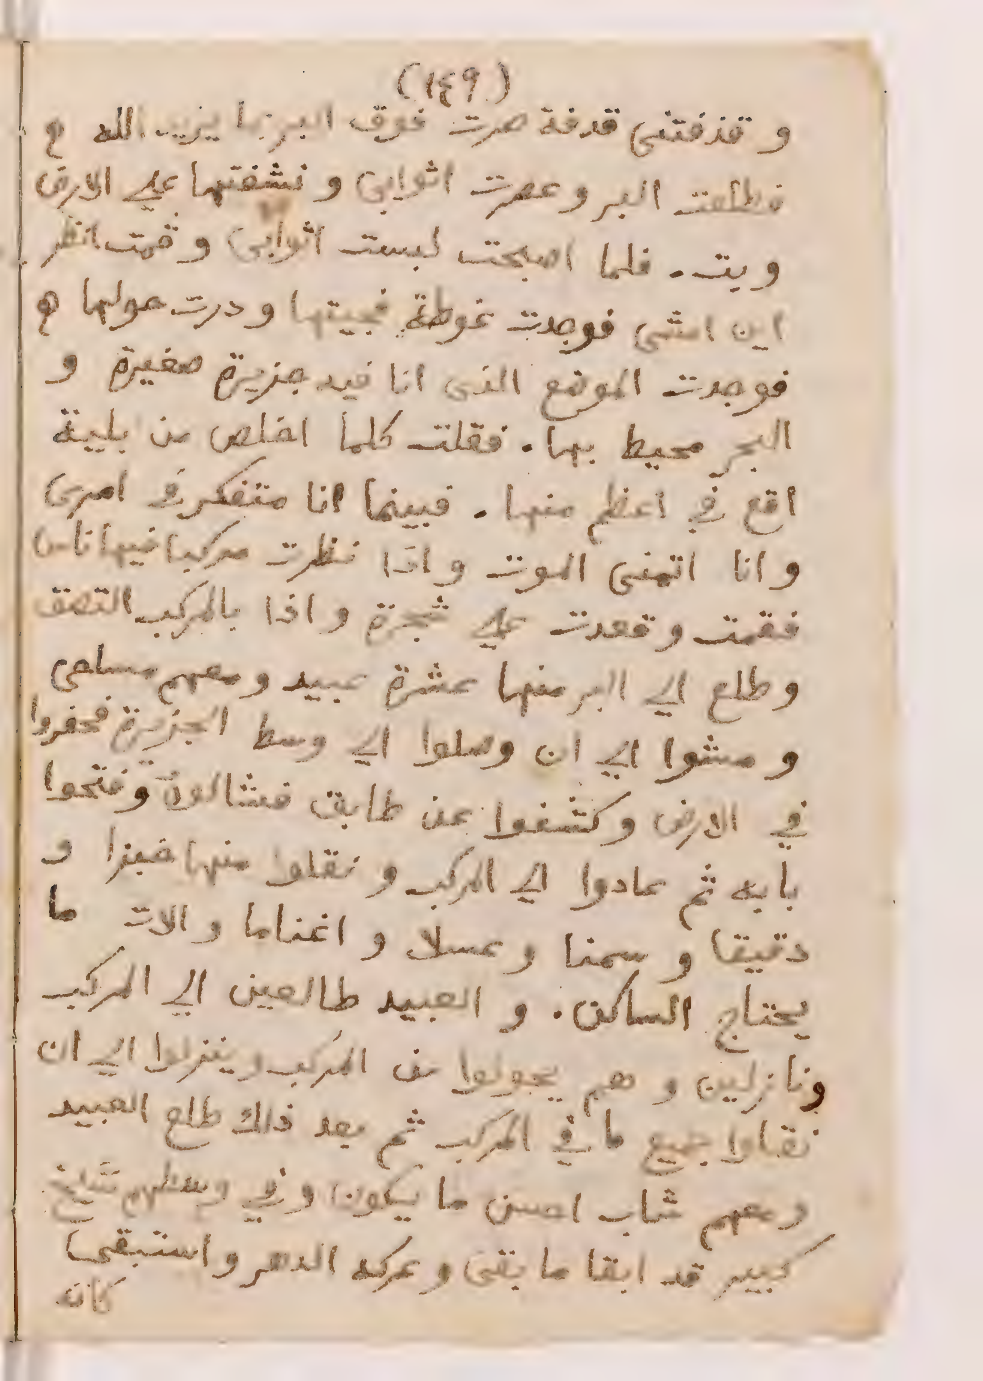 (١٤٩)
و قذفتنى قدفة صرت فوق البر بما يريد الله
فطلعت البر و عصرت اثوابى و نشفتها على الارض
و بت . فلما اصبحت لبست اثوابى و قمت انظر
اين امشى فوجدت غوطة فجيتها و درت حولها
فوجدت الموضع الذى انا فيه جزيرة صغيرة و
البحر محيط بها . فقلت كلما اخلص من بلية
اقع في اعظم منها . فبينما انا متفكر في امرى
و انا اتمنى الموت و اذا نظرت مركبا فيها ناس
فقمت و قعدت على شجرة و اذا بالمركب التصق
و طلع الي البر منها عشرة عبيد و معهم مساحى
و مشوا الي ان وصلوا الي وسط الجزيرة فحفروا
في الارض و كشفوا عن طابق فشالوه و فتحوا
بابه ثم عادوا الي المركب و نقلوا منها خبزا و
دقيقا و سمنا و عسلا و اغناما و الات ما
يحتاج الساكن . و العبيد طالعين الي المركب
ونازلين و هم يحولوا من المركب و ينزلوا الي ان
نقلوا جميع ما في المركب ثم بعد ذلك طلع العبيد
و معهم شاب احسن ما يكون و في وسطهم شايخ
كبير قد ابقا ما بقى و عركه الدهر و استبقى
كانه